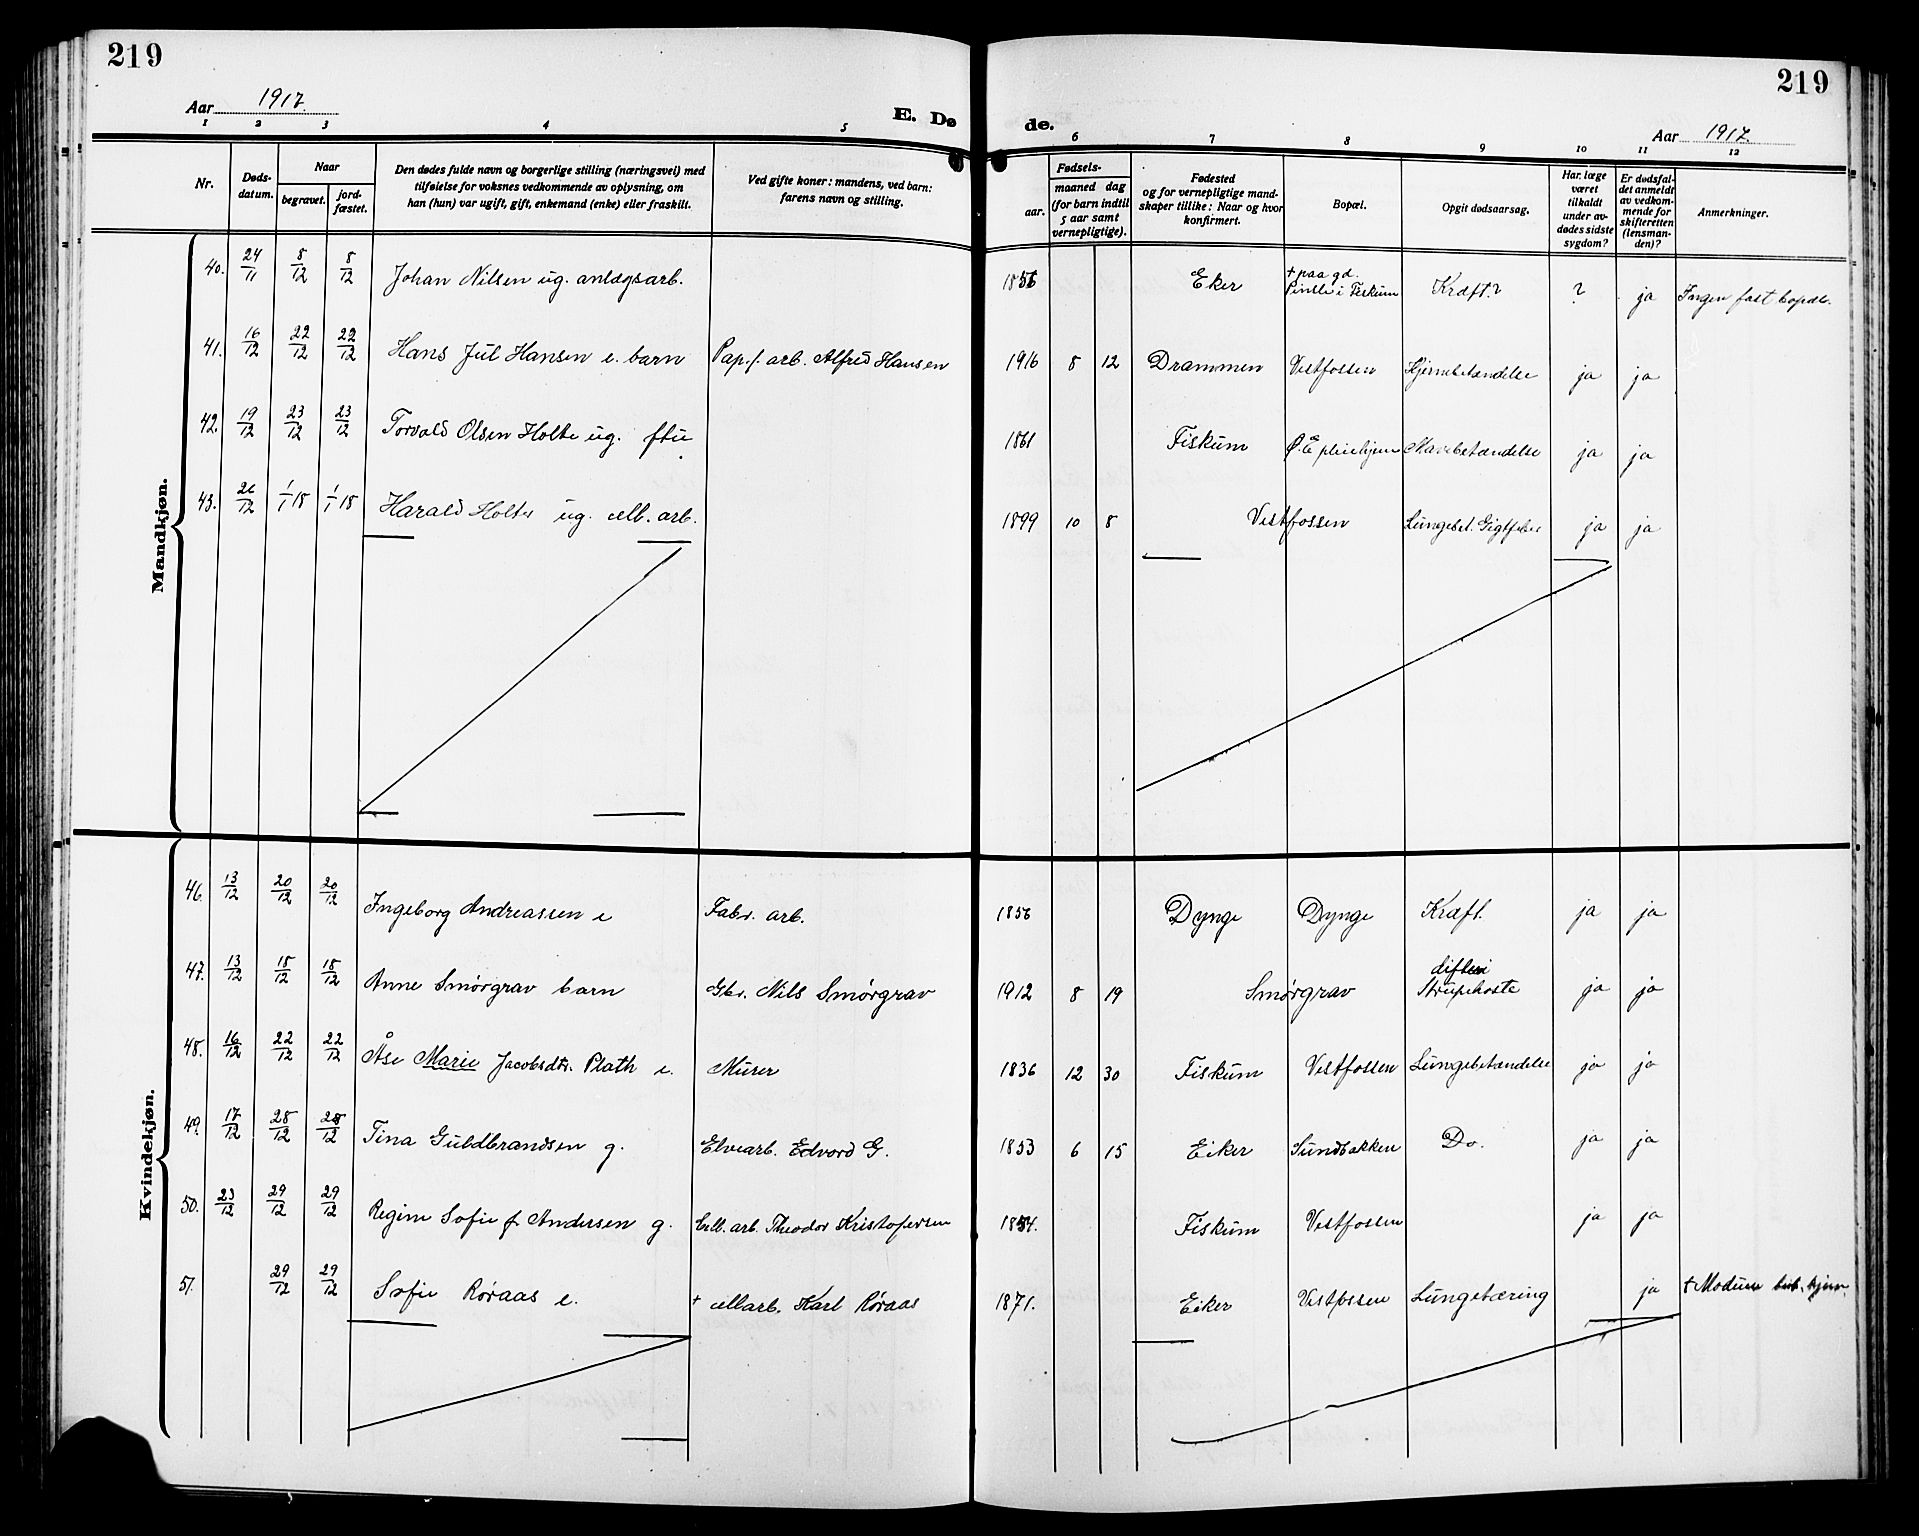 219
219
Aar 1917.
E. Dø
de.
Aar 1917.
1 2 3 4 5
6 7 8 9 10 11 12
Nr.
Døds-
datum.
Naar
begravet.
jord-
fæstet.
Den dødes fulde navn og borgerlige stilling (næringsvei) med
tilføielse for voksnes vedkommende av oplysning, om
han (hun) var ugift, gift, enkemand (enke) eller fraskilt.
Ved gifte koner: mandens, ved barn:
farens navn og stilling.
Fødsels-
aar.
maaned dag
(for barn indtil
5 aar samt
vernepligtige).
Fødested
og for vernepligtige mand-
skaper tillike: Naar og hvor
konfirmert.
Bopæl.
Opgit dødsaarsag.
Har læge
været
tilkaldt
under av-
dødes sidste
sygdom?
Er dødsfal-
det anmeldt
av vedkom-
mende for
skifteretten
(lensman-
den)?
Anmerkninger.
Mandkjøn.
40. 24/11 8/12 8/12 Johan Nilsen ug. anlægsarb. 1856 Eker + paa gd. i Fiskum Kræft? ? ja Ingen fast bopæl.
41. 16/12 22/12 22/12 Hans Jul Hansen e. barn Pap.f. arb. Alfred Hansen 1916 8 12 Drammen Vestfossen Hjernebetændelse ja ja
42. 19/12 23/12 23/12 Torvald Olsen Holte ug. 1861 Fiskum Ø. E pleiehjem Mavebetændelse ja ja
43. 26/12 1/1 18 1/1 18 Harald Holter ug. cell. arb. 1899 10 8 Vestfossen Lungebet. Gigtfeber ja ja
Kvindekjøn.
46. 13/12 20/12 20/12 Ingeborg Andreassen e Fabr. arb. 1856 Dynge Dynge Kræft. ja ja
47. 13/12 18/12 18/12 Anne Smørgrav barn Gbr. Nils Smørgrav 1912 8 19 Smørgrav difteri Strupehoste ja ja
48. 16/12 22/12 22/12 Åse Marie Jacobsdtr. Plath e. Murer 1836 12 30 Fiskum Vestfossen Lungebetændelse ja ja
49. 17/12 28/12 28/12 Tina Guldbrandsen g. Elvearb. Edvard G. 1853 6 15 Eiker Sundbakken Do. ja ja
50. 23/12 29/12 29/12 Regine Sofie f. Andersen g. Cell. arb. Theodor Kristofersen 1854. Fiskum Vestfossen ja ja
51. 29/12 29/12 Sofie Røraas e. + cellarb. Karl Røraas 1871. Eiker Vestfossen Lungetæring ja + Modum tub. hjem.